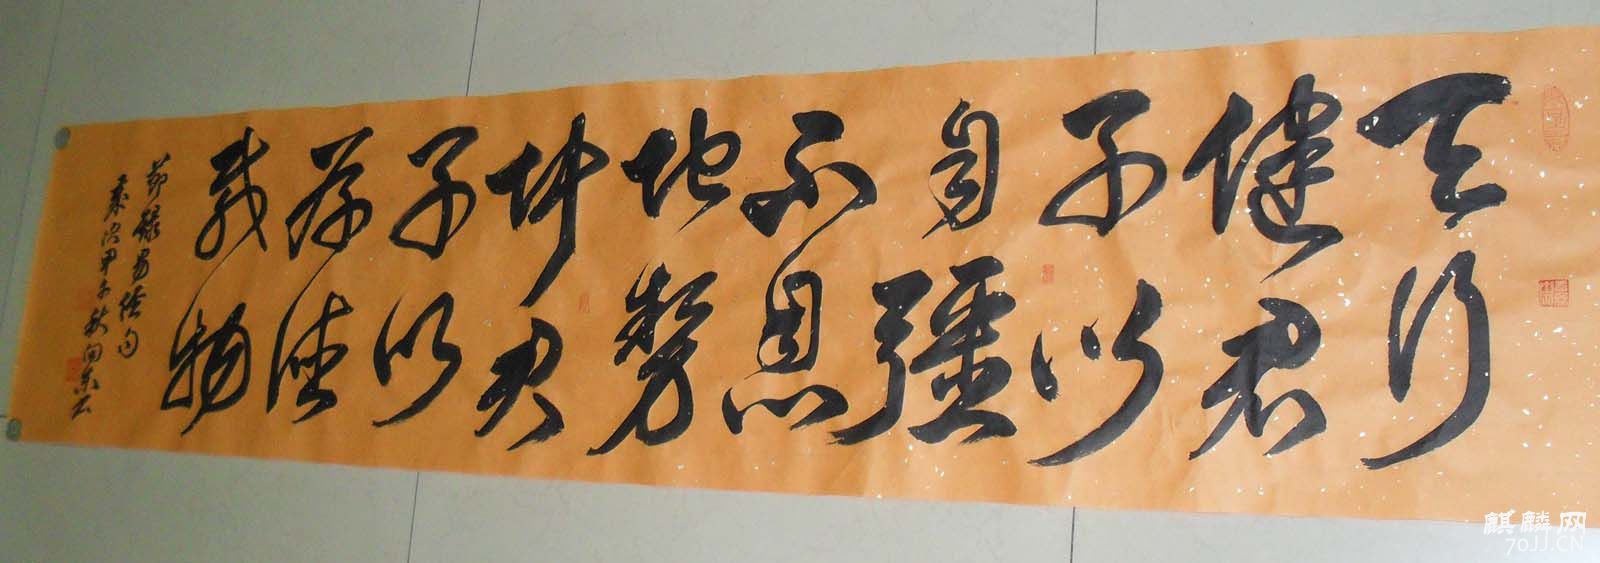 天行
健君
子以
自彊
不息
地势
坤君
子以
厚德
载物
節録易经句
岁次甲午秋向东书
麒麟网
70JJ.CN